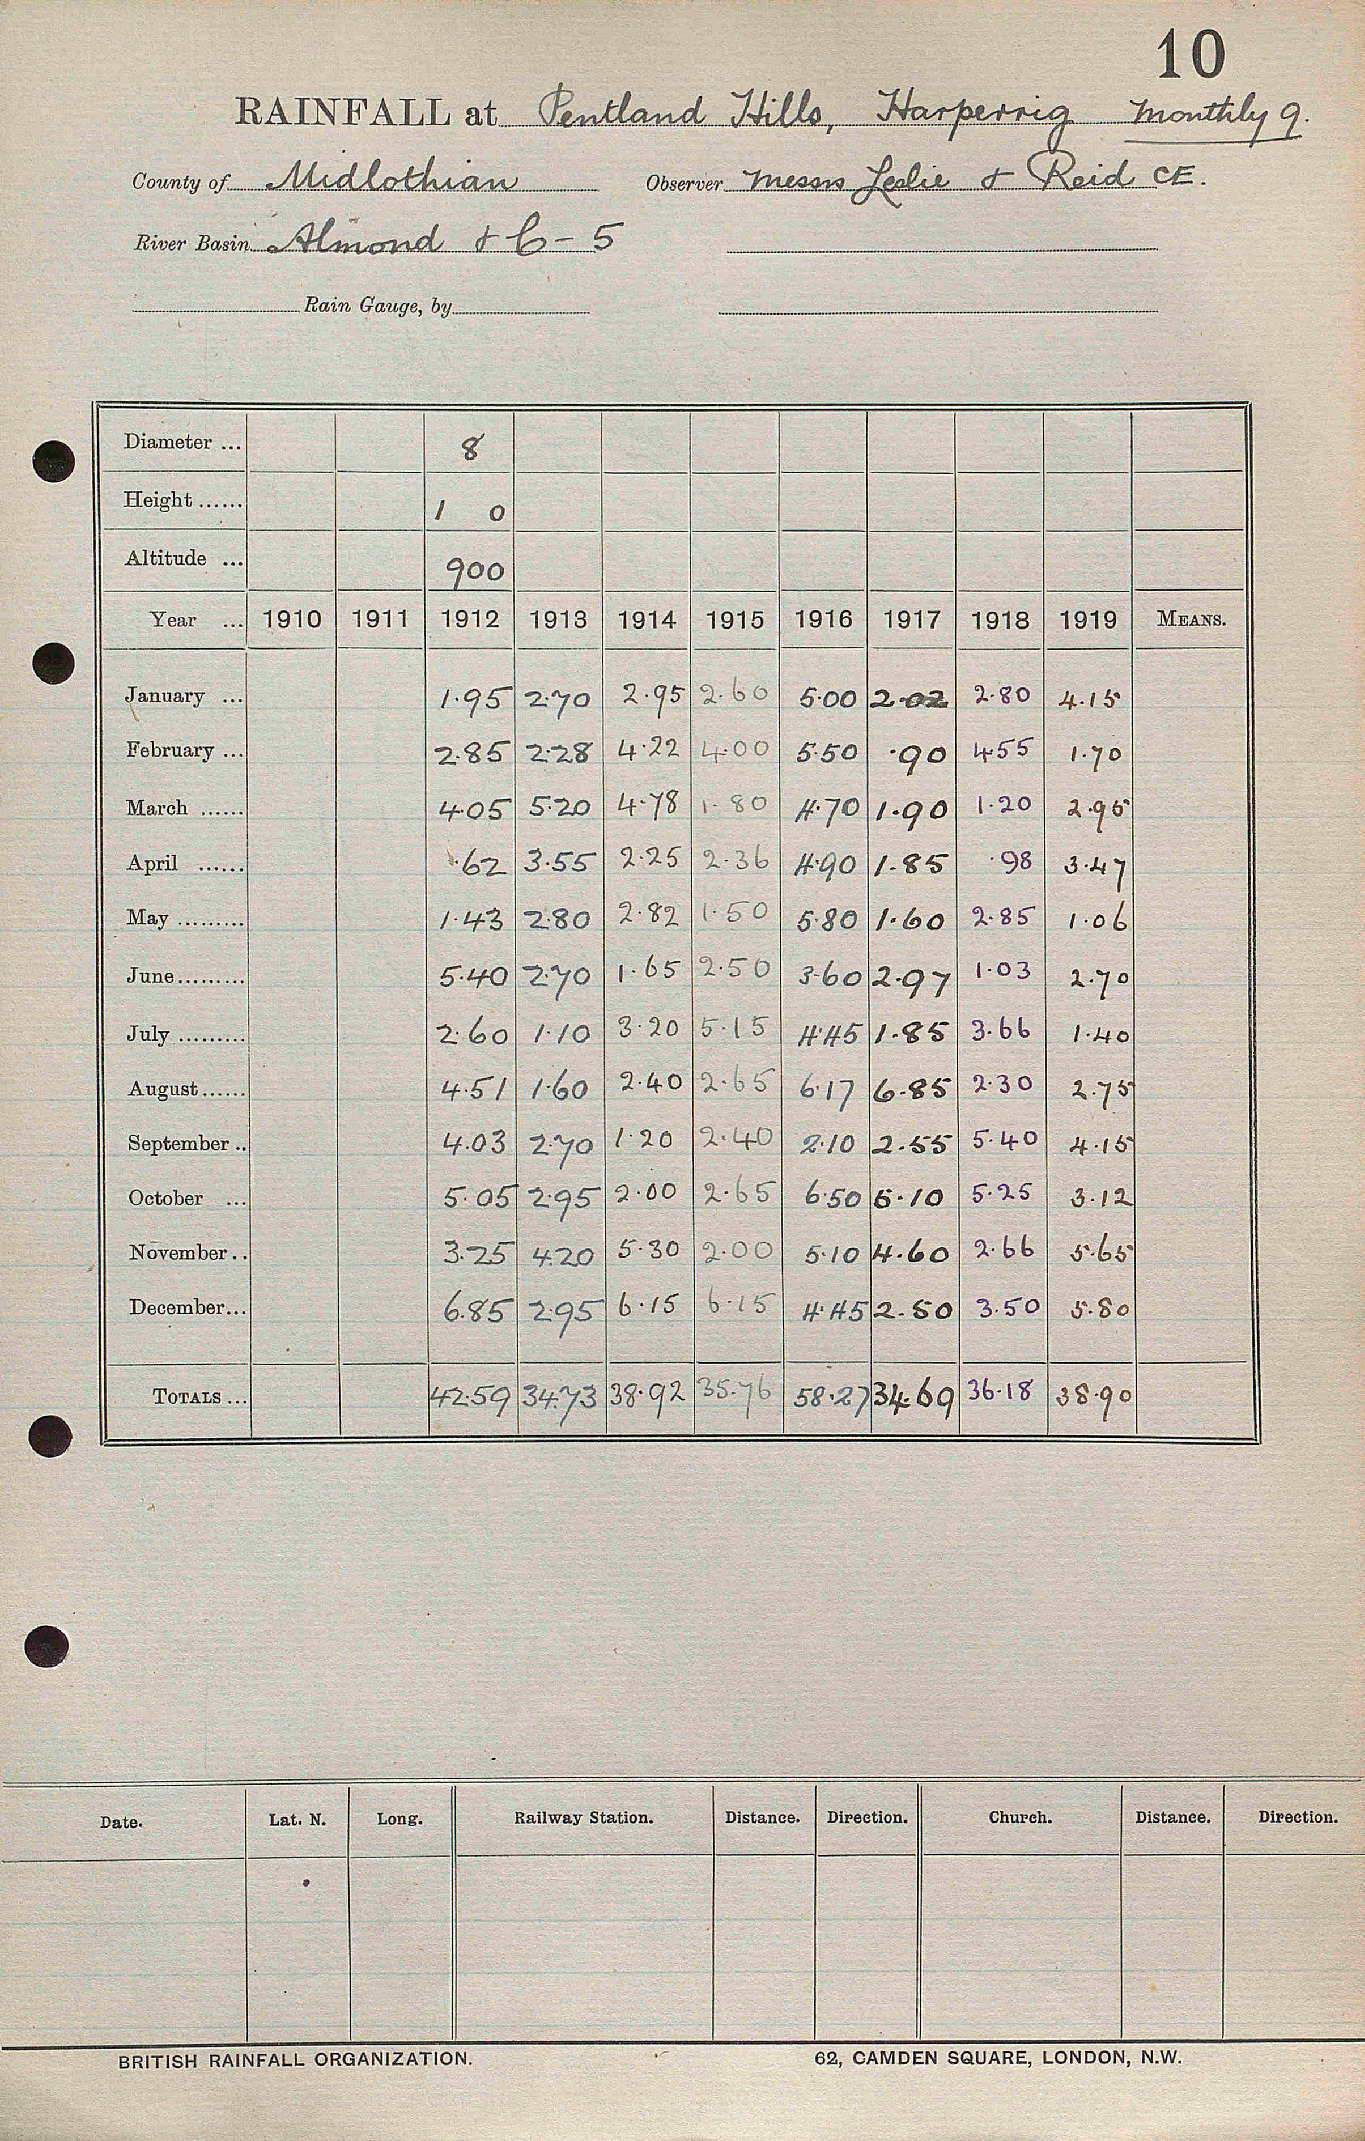 10
RAINFALL at Pentland Hills, Harperrig Monthly 9.
County of Midlothian Observer Messrs Leslie & Reid CE.
River Basin Almond & C – 5
Rain Gauge, by
Diameter ... 8
Height ...... 1 0
Altitude ... 900
Year ... 1910 1911 1912 1913 1914 1915 1916 1917 1918 1919 MEANS.
January ... 1.95 2.70 2.95 2.60 5.00 2.02 2.80 4.15
February ... 2.85 2.28 4.22 4.00 5.50 .90 4.55 1.70
March ...... 4.05 5.20 4.78 1.80 4.70 1.90 1.20 2.95
April ...... .62 3.55 2.25 2.36 4.90 1.85 .98 3.47
May ......... 1.43 2.80 2.82 1.50 5.80 1.60 2.85 1.06
June......... 5.40 2.70 1.65 2.50 3.60 2.97 1.03 2.70
July ......... 2.60 1.10 3.20 5.15 4.45 1.85 3.66 1.40
August...... 4.51 1.60 2.40 2.65 6.17 6.85 2.30 2.75
September .. 4.03 2.70 1.20 2.40 2.10 2.55 5.40 4.15
October ... 5.05 2.95 2.00 2.65 6.50 5.10 5.25 3.12
November .. 3.25 4.20 5.30 2.00 5.10 4.60 2.66 5.65
December... 6.85 2.95 6.15 6.15 4.45 2.50 3.50 5.80
TOTALS ... 42.59 34.73 38.92 35.76 58.27 34.69 36.18 38.90
Date. Lat. N. Long. Railway Station. Distance. Direction. Church. Distance. Direction.
BRITISH RAINFALL ORGANIZATION. 62, CAMDEN SQUARE, LONDON, N.W.